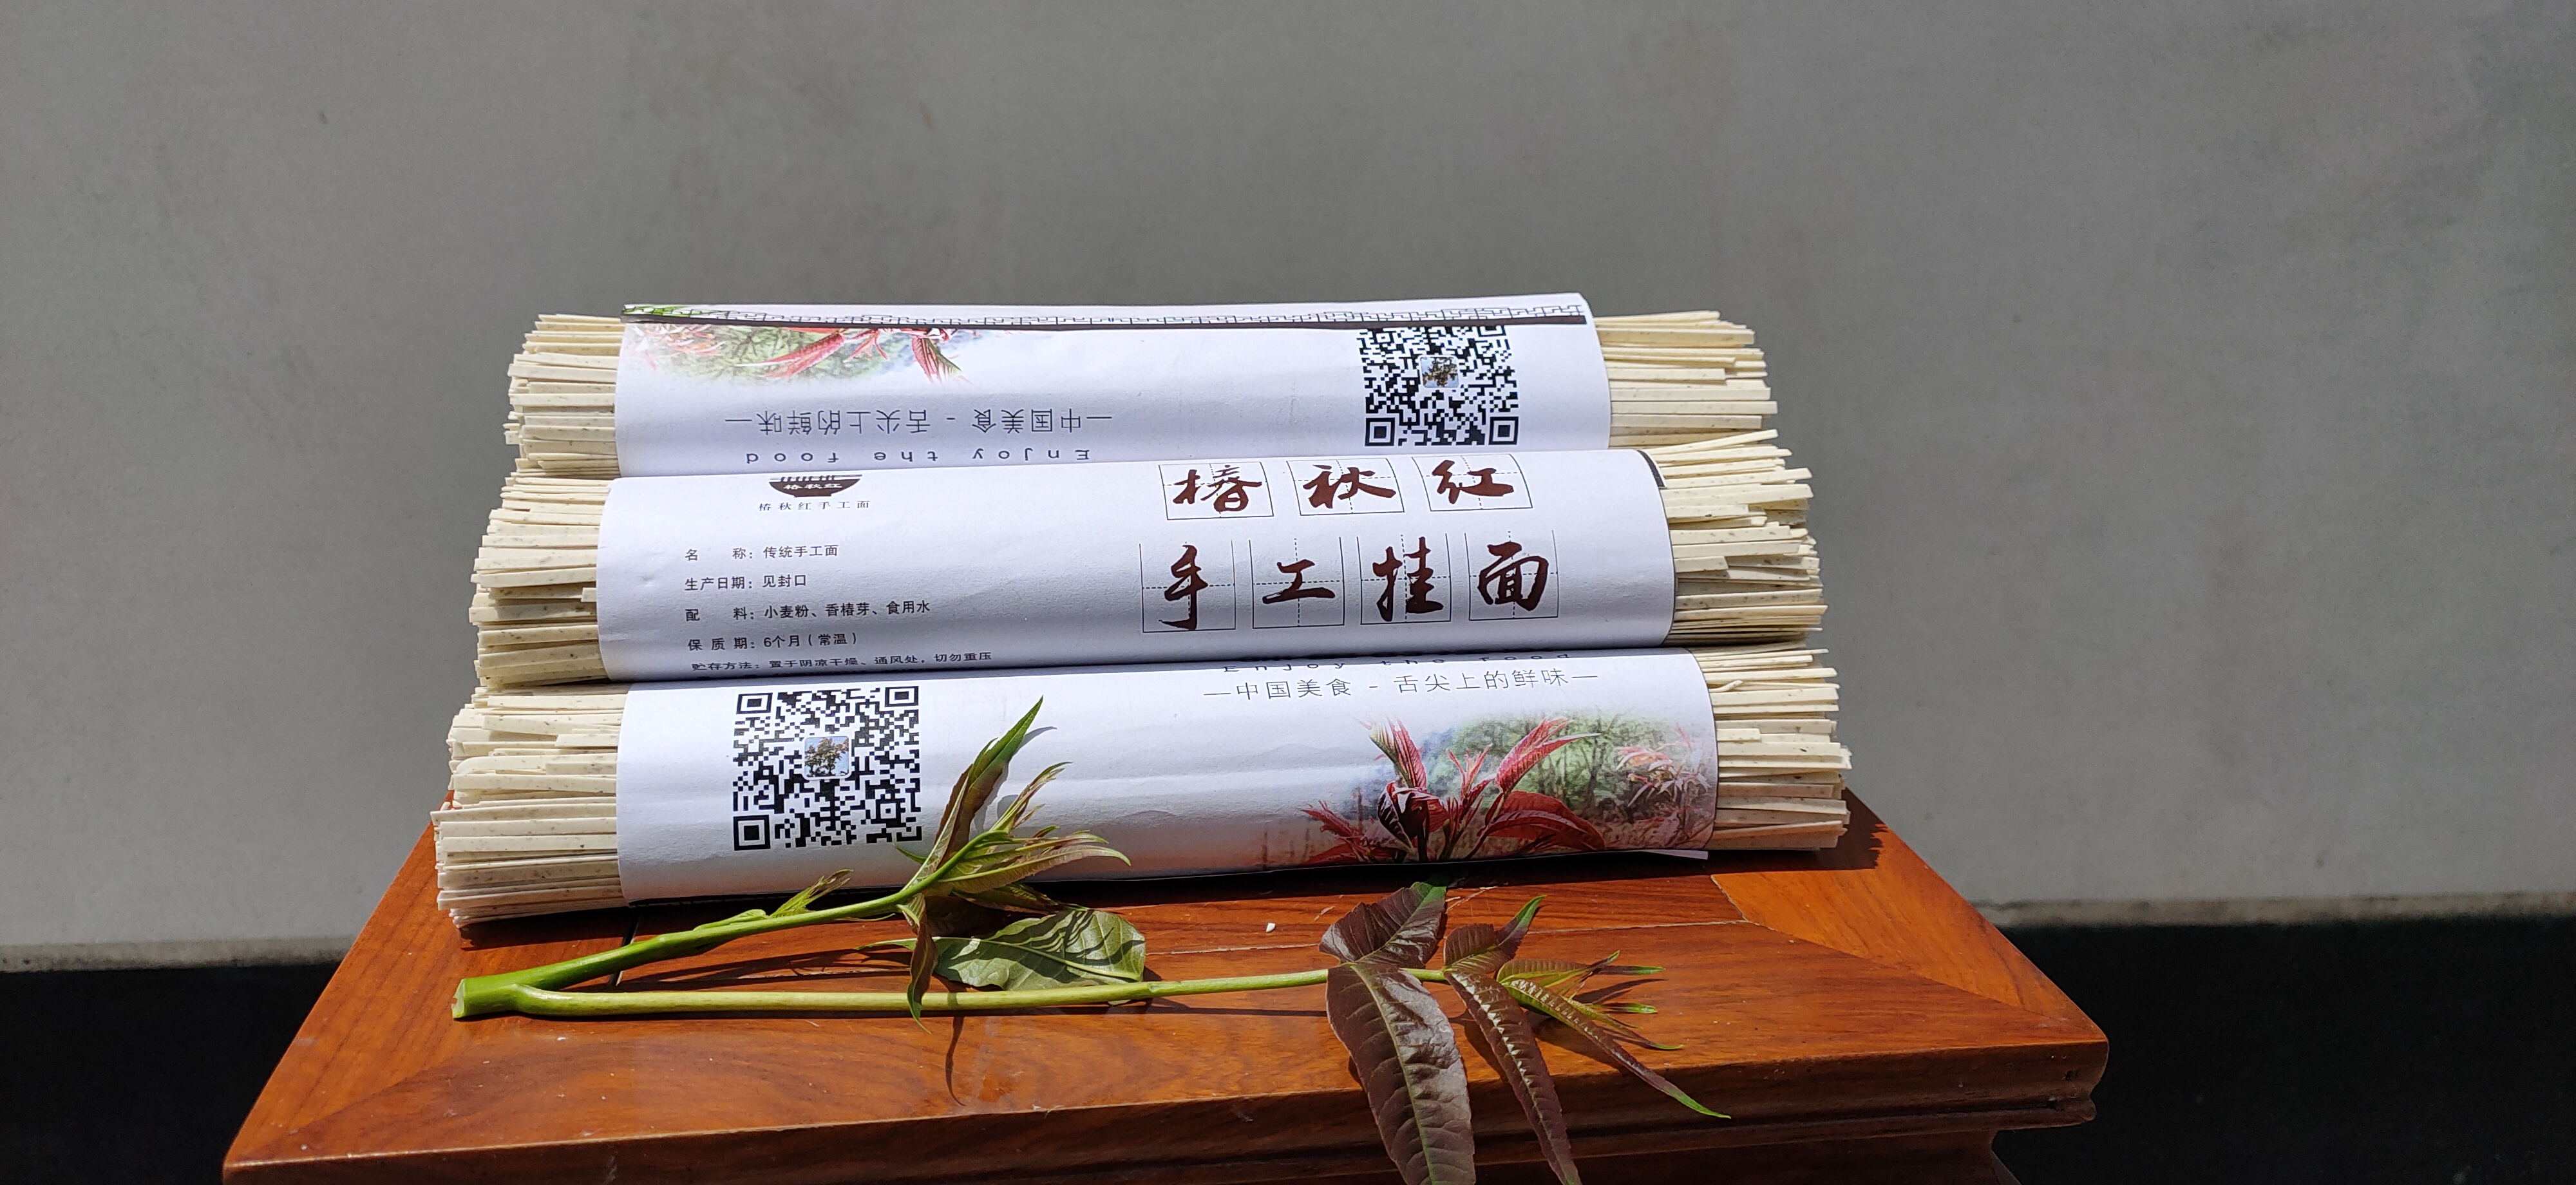 —中国美食 - 舌尖上的鲜味—
Enjoy the food
椿秋红
椿秋红手工面
名 称：传统手工面
生产日期：见封口
配 料：小麦粉、香椿芽、食用水
保 质 期：6个月（常温）
贮存方法：置于阴凉干燥、通风处，切勿重压
椿秋红
手工挂面
Enjoy the food
—中国美食 - 舌尖上的鲜味—